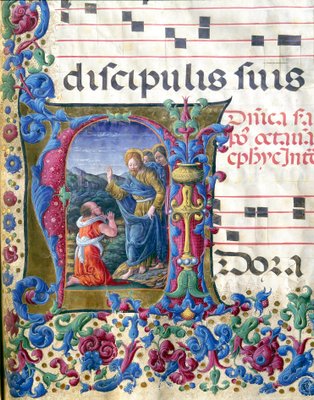 discipulis suis
Dñica
octaua
ephye Int
A
Dora